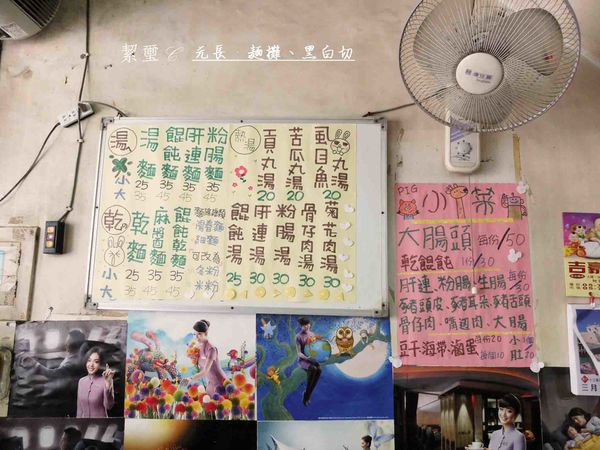 絜璽 C 元長‧麵攤、黑白切
湯 湯麵 餛飩麵 肝連麵 粉腸麵
小 25 35 35 35
大 35 45
熱湯 貢丸湯 苦瓜丸湯 虱目魚丸湯
20 20 20
乾 乾麵 麻醬麵 餛飩乾麵
小 25 25 35
大 35 35 45
可改為
米粉
餛飩湯 肝連湯 粉腸湯 骨仔肉湯 菊花肉湯
25 30 30 30 30
PIG
小菜
大腸頭 每份/50
乾餛飩 1份/30
肝連、粉腸、生腸 每份/50
豬頭皮、豬耳朵、豬舌頭
骨仔肉、嘴邊肉、大腸
豆干、海帶、滷蛋
小肚